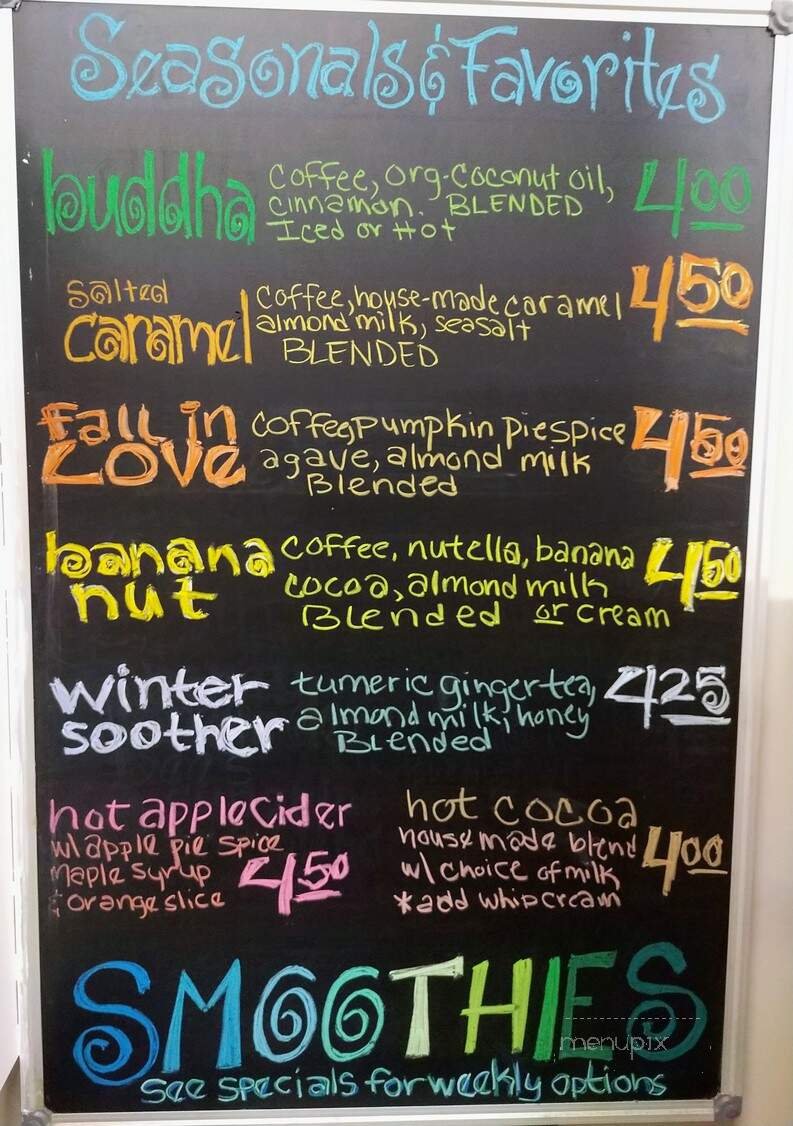 Seasonals & Favorites
buddha
coffee, org-coconut oil,
cinnamon. BLENDED
Iced or Hot
4 00
salted
caramel
coffee, house-made caramel
almond milk, seasalt
BLENDED
4 50
Fall in
LOVE
coffee, pumpkin pie spice
agave, almond milk
Blended
4 50
banana
nut
coffee, nutella, banana
cocoa, almond milk
Blended or cream
4 50
winter
soother
tumeric ginger tea,
almond milk, honey
Blended
4 25
hot apple cider
w/ apple pie spice
maple syrup
& orange slice
4 50
hot cocoa
house made blend
w/ choice of milk
*add whip cream
4 00
SMOOTHIES
see specials for weekly options
menupix